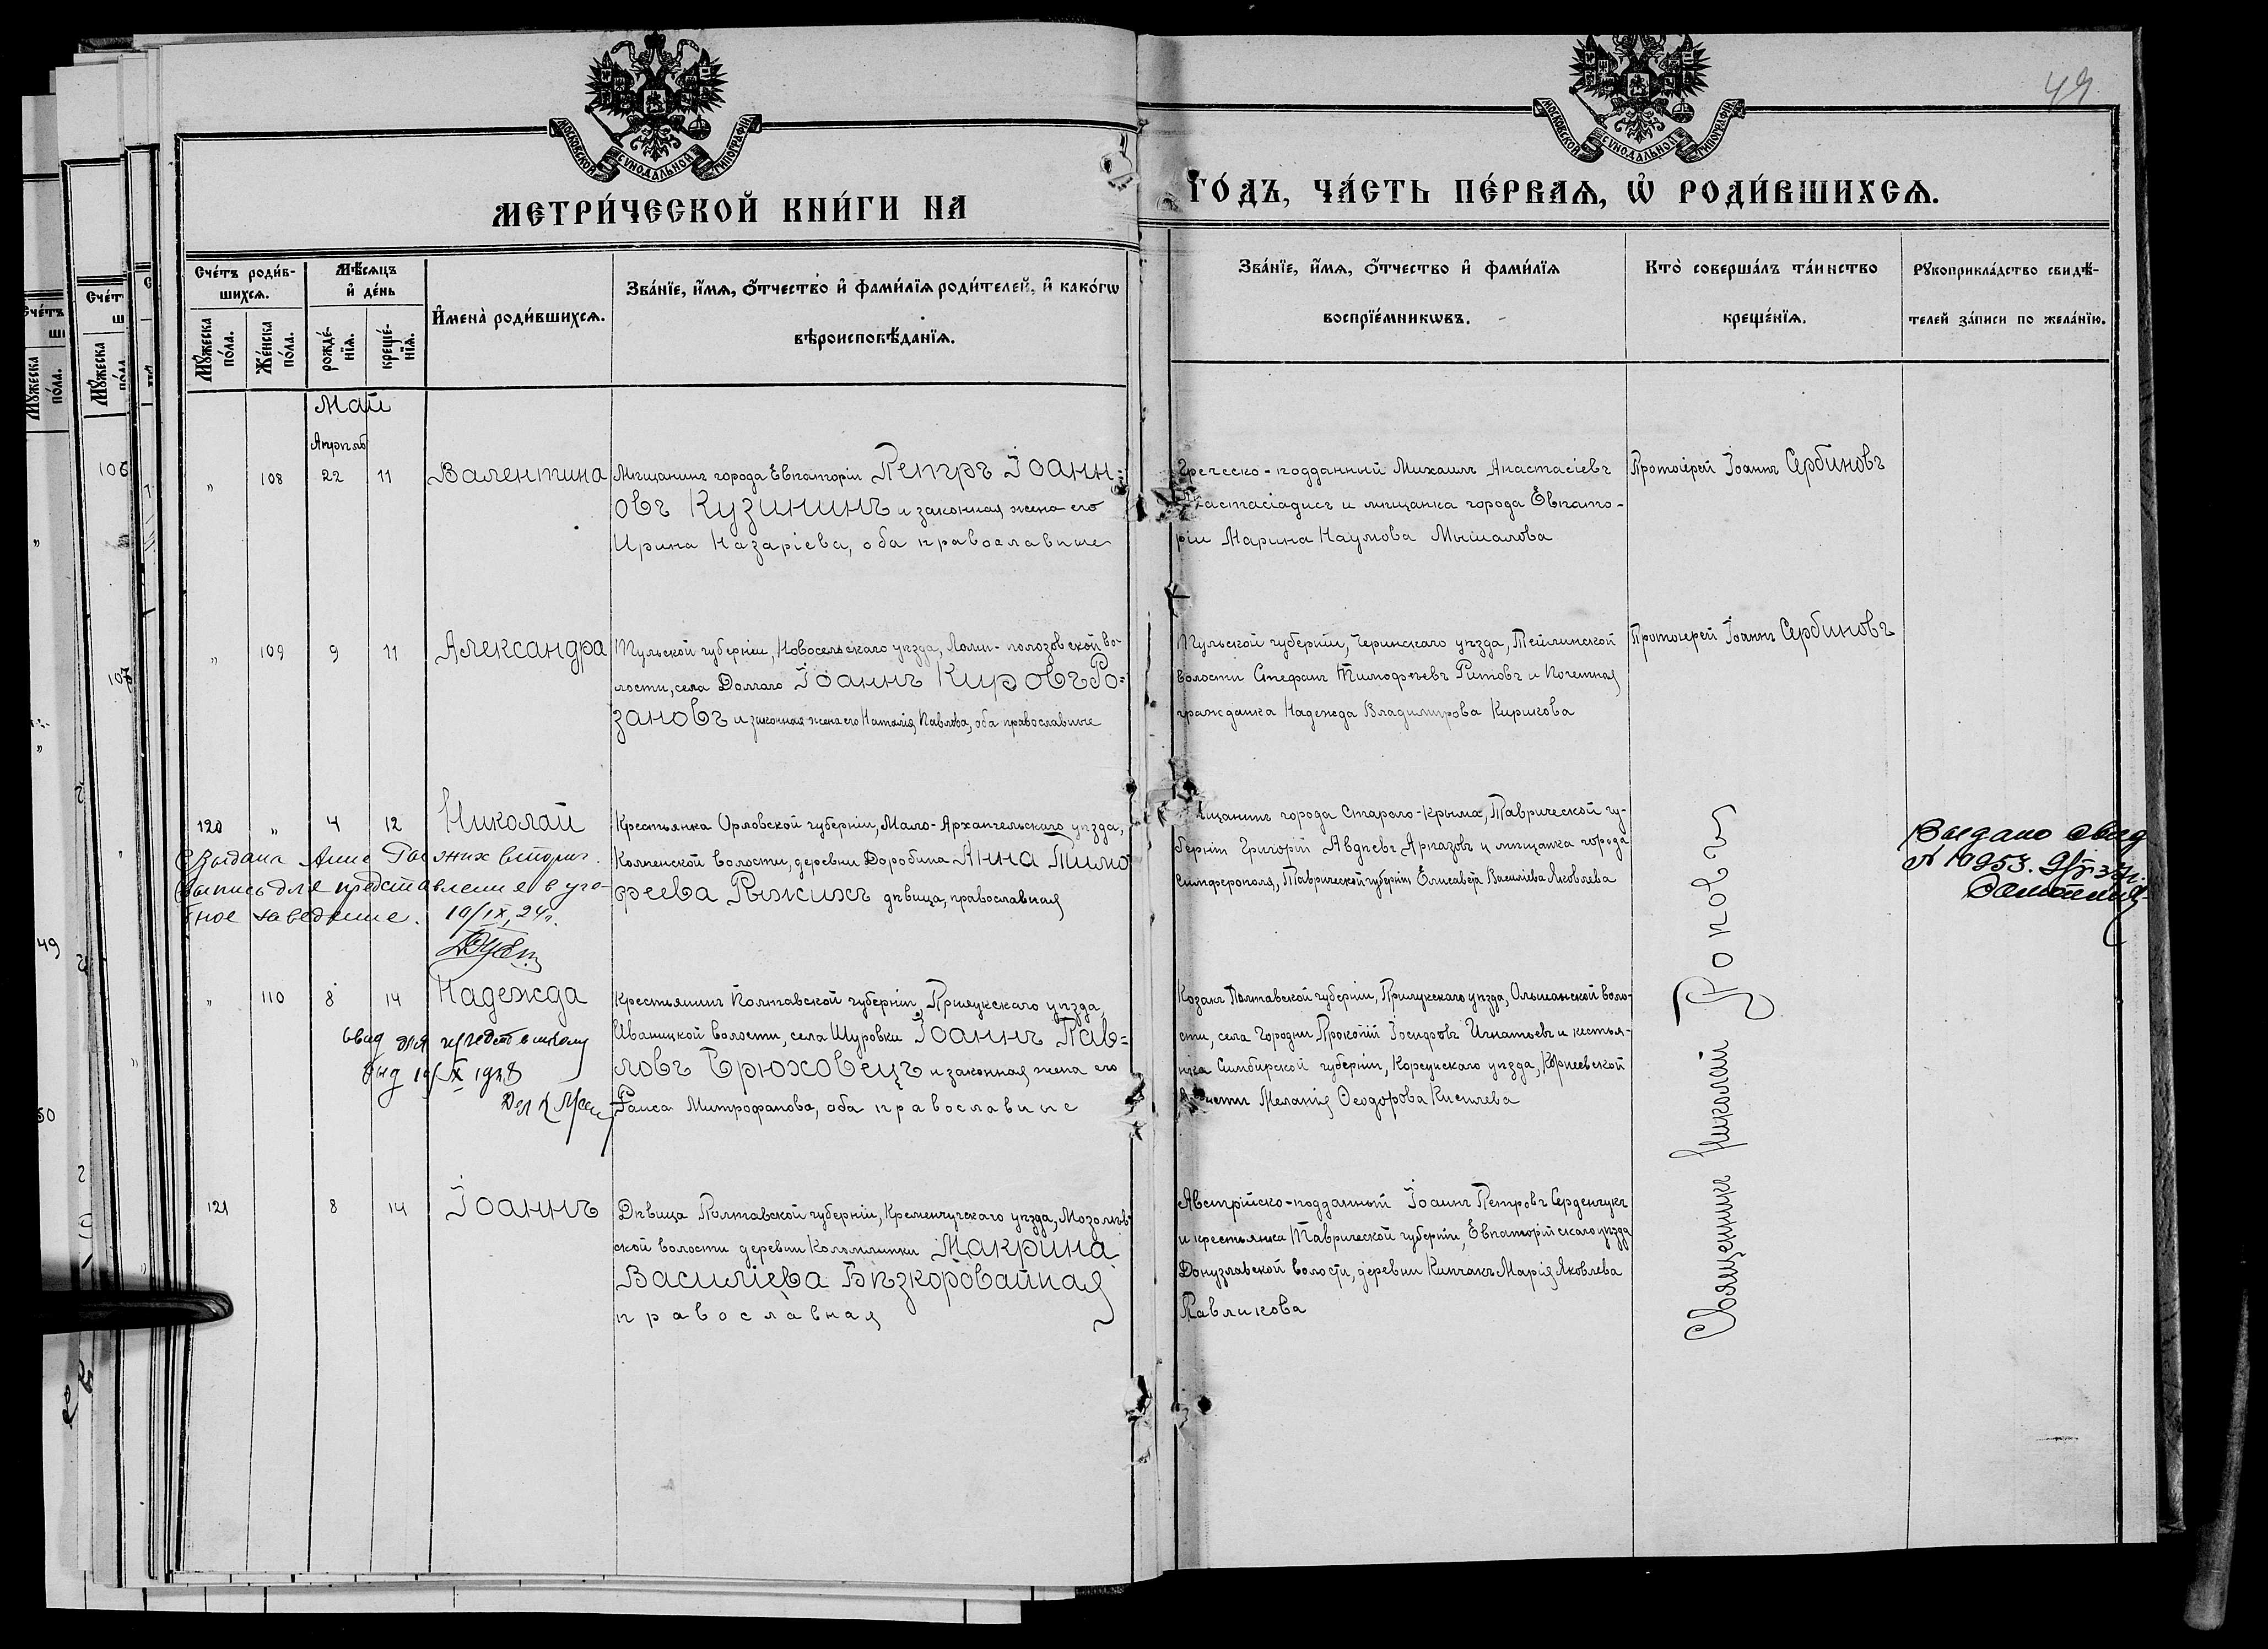 49
МОСКОВСКОЙ СѴНОДАЛЬНОЙ ТИПОГРАФІИ
МОСКОВСКОЙ СѴНОДАЛЬНОЙ ТИПОГРАФІИ
МЕТРИ́ЧЕСКОЙ КНИ́ГИ НА
ГО́ДЪ, ЧА́СТЬ ПЕ́РВАѦ, Ѿ РОДИ́ВШИХСѦ.
Сче́тъ роди́в-
шихсѧ.
Мꙋ́жеска
по́ла.
Же́нска
по́ла.
Мѣ́сѧцъ
и҆ де́нь
рожде́-
нїѧ.
креще́-
нїѧ.
И҆мена̀ роди́вшихсѧ.
Зва́нїе, и҆́мѧ, ѻ҆́тчество и҆ фами́лїѧ роди́телей, и҆ како́гѡ
вѣроисповѣ́данїѧ.
Зва́нїе, и҆́мѧ, ѻ҆́тчество и҆ фами́лїѧ
воспрїе́мникѡвъ.
Кто̀ соверша́лъ та́инство
креще́нїѧ.
Рꙋкоприкла́дство свидѣ́-
телей за́писи по жела́нїю.
Май
Апрѣль
" 108 22 11 Валентина
Мѣщанинъ города Евпаторіи Петръ Іоанн=
овъ Кузининъ и законная жена его
Ирина Назаріева, оба православные
Греческо-подданный Михаилъ Анастасіевъ
и мѣщанка города Евпато-
ріи Марина Наумова Мышалова
Протоіерей Іоаннъ Сербиновъ
" 109 9 11 Александра
Тульской губерніи, Новосельскаго уѣзда, во-
лости, села Долгаго Іоаннъ Кировъ Ро=
зановъ и законная жена его Наталія Павлова, оба православные
Тульской губерніи, Чернскаго уѣзда, Тейлинской
волости Стефанъ Тимофеевъ Титовъ и Почетная
гражданка Надежда Владимирова Кирикова
Протоіерей Іоаннъ Сербиновъ
120 " 4 12 Николай
Крестьянка Орловской губерніи, Мало-Архангельскаго уѣзда,
Колпенской волости, деревни Доробина Анна Тимо
феева Рыжихъ дѣвица, православная
Мѣщанинъ города Стараго-Крыма, Таврической гу-
берніи Григорій Авдѣевъ Аргазовъ и мѣщанка города
Симферополя, Таврической губерніи Елисавета Василіева Яковлева
Выдана Анне Рыжих вторич.
выпись для представления в уче-
бное заведение. 19/IX, 24 г.
Выдано свид
№ 10953.
" 110 8 14 Надежда
Крестьянинъ Полтавской губерніи, Прилукскаго уѣзда,
Иваницкой волости, села Щуровки Іоаннъ Пав=
ловъ Брюховецъ и законная жена его
Раиса Митрофанова, оба православные
Козакъ Полтавской губерніи, Прилукскаго уѣзда, Ольшанской воло-
сти, села Городни Прокопій Іосифовъ Игнатьевъ и кестья-
нка Симбирской губерніи, Корсунскаго уѣзда, Корнеевской
волости Меланія Ѳеодорова Киселева
свид для в школу
выд 19/IX 1928
121 8 14 Іоаннъ
Дѣвица Полтавской губерніи, Кременчугскаго уѣзда, Мозолѣв-
ской волости деревни Макрина
Василіева Бѣзкоровайная
православная
Австрійско-подданный Іоаннъ Петровъ Серденчукъ
и крестьянка Таврической губерніи, Евпаторійскаго уѣзда
Донузлавской волости, деревни Кипчакъ Марія Яковлева
Павликова
Священникъ Николай Поповъ